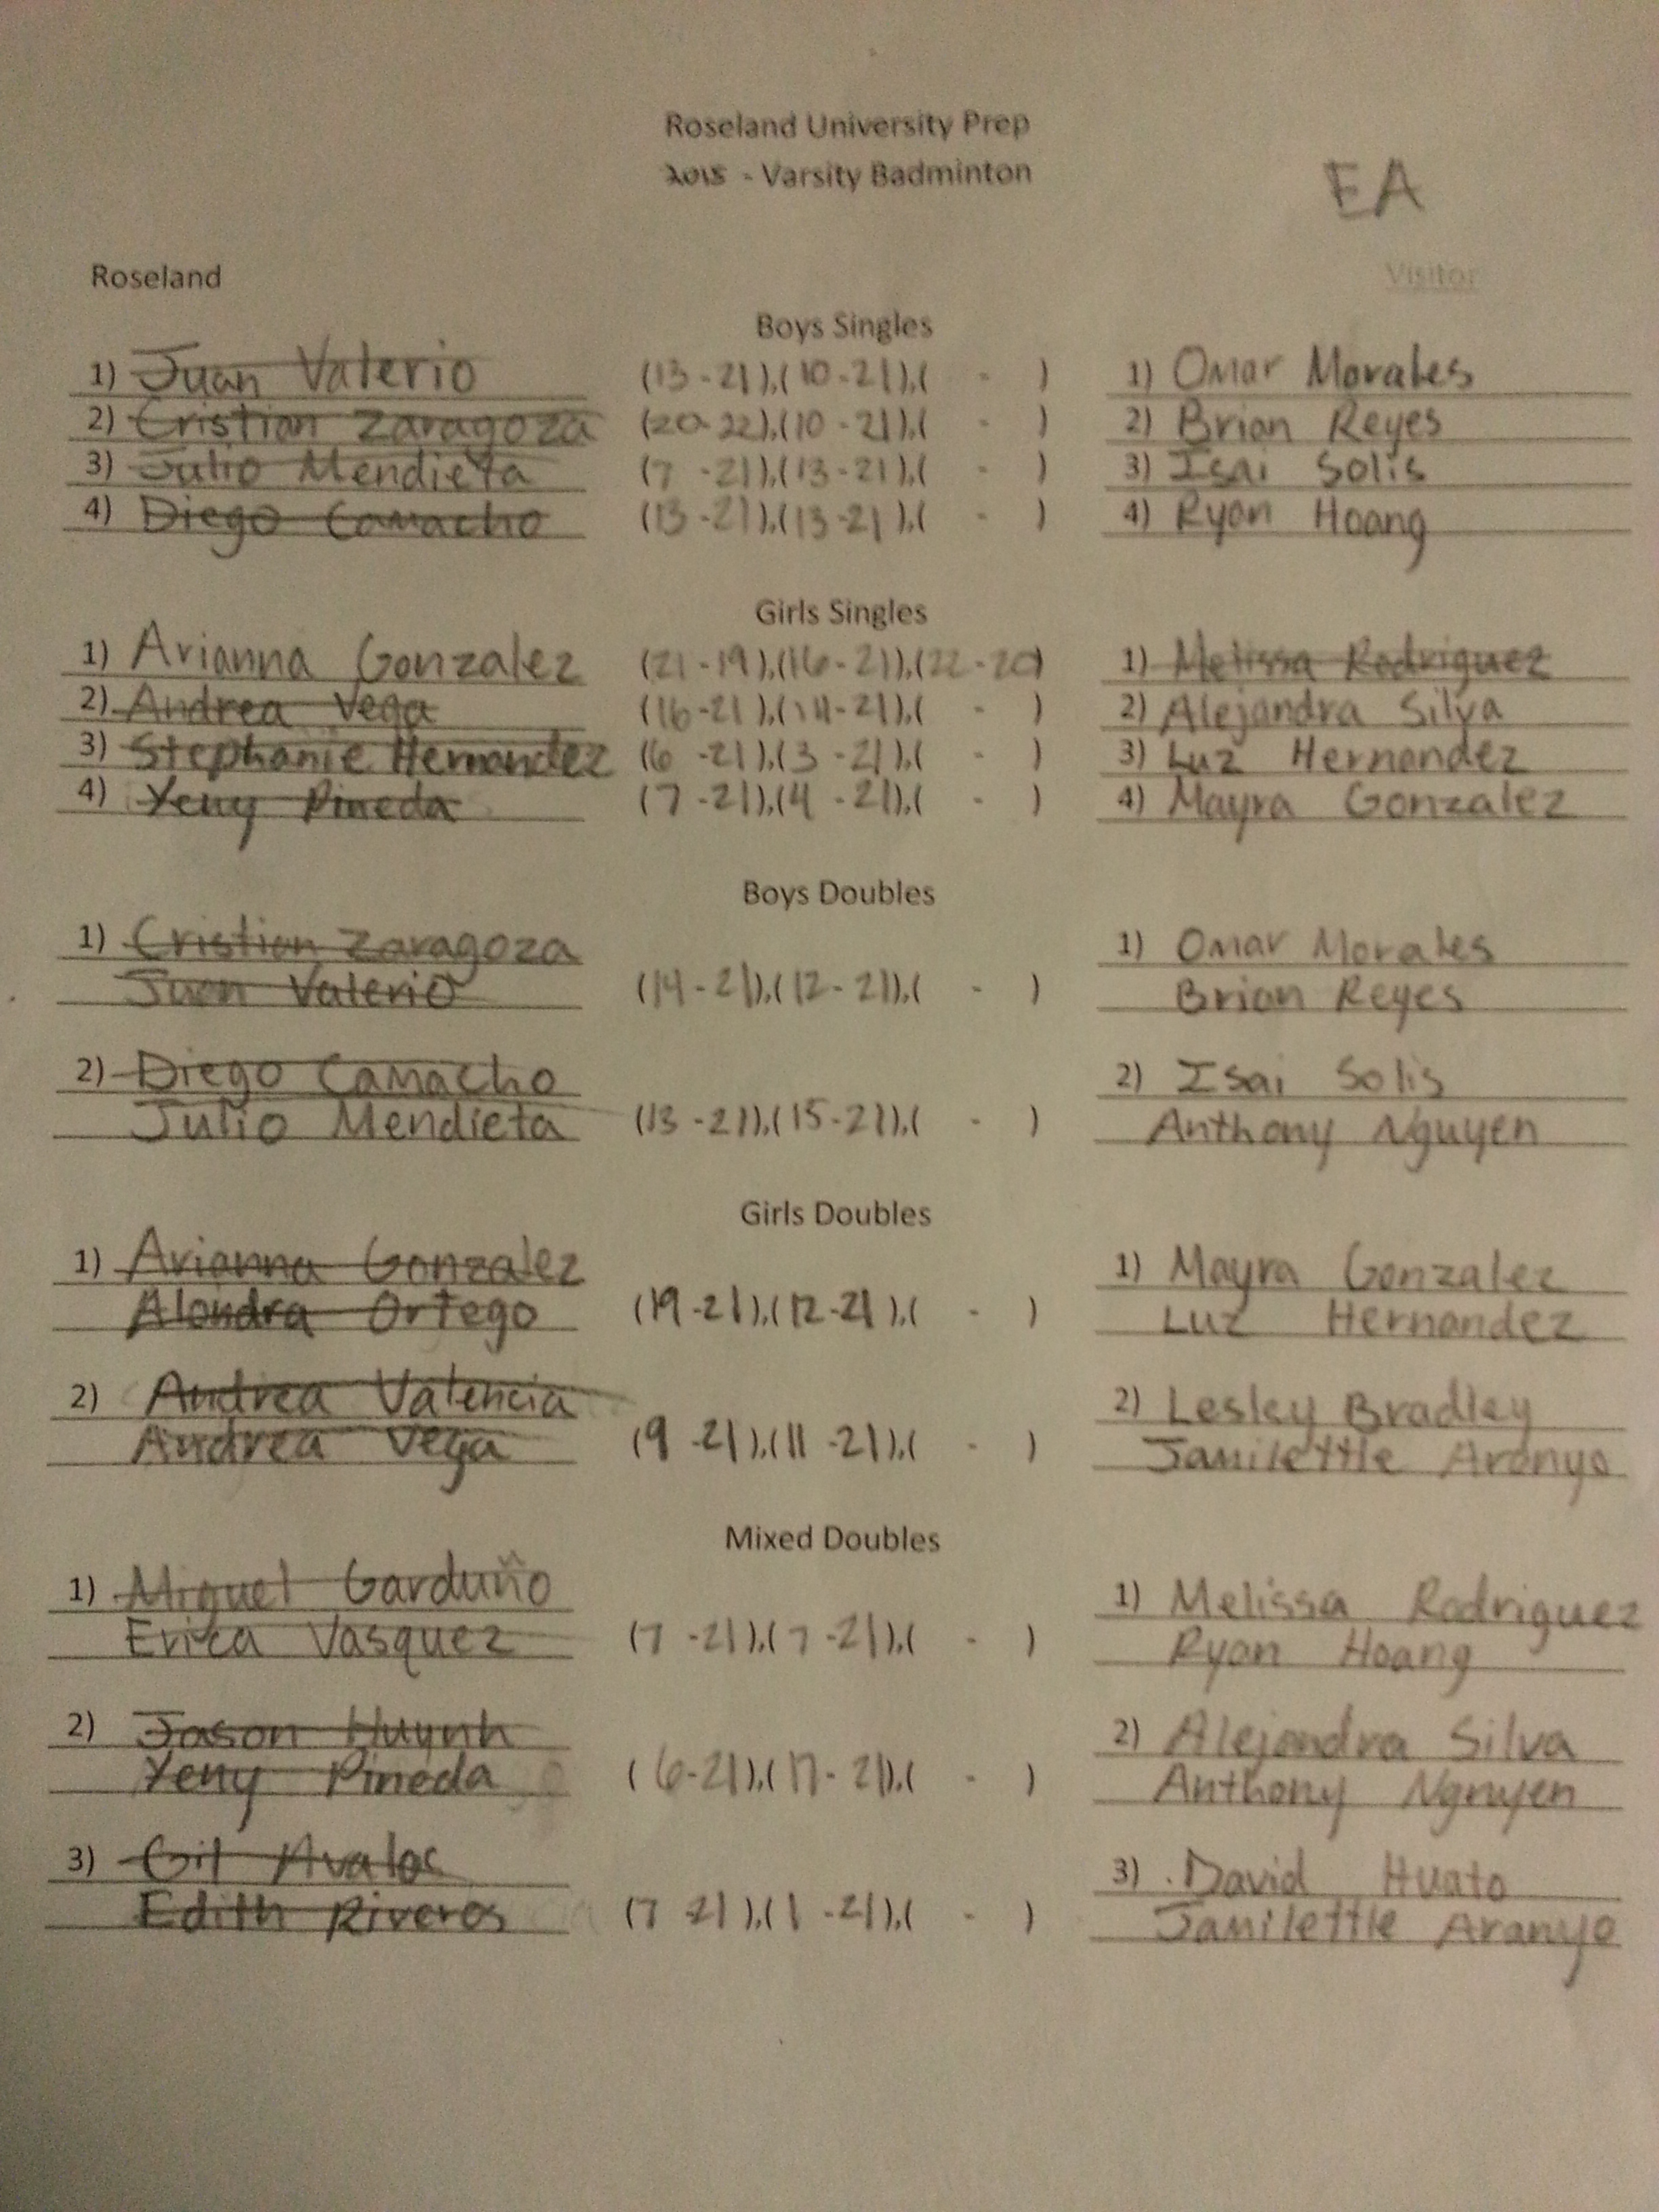 Roseland University Prep
2015 - Varsity Badminton
EA
Roseland
Visitor
Boys Singles
1) Juan Valerio (13-21),(10-21),( - ) 1) Omar Morales
2) Cristian Zaragoza (20-22),(10-21),( - ) 2) Brian Reyes
3) Julio Mendieta (7-21),(13-21),( - ) 3) Isai Solis
4) Diego Camacho (13-21),(13-21),( - ) 4) Ryan Hoang
Girls Singles
1) Arianna Gonzalez (21-19),(16-21),(22-20) 1) Melissa Rodriguez
2) Andrea Vega (16-21),(14-21),( - ) 2) Alejandra Silva
3) Stephanie Hernandez (6-21),(3-21),( - ) 3) Luz Hernandez
4) Yeny Pineda (7-21),(4-21),( - ) 4) Mayra Gonzalez
Boys Doubles
1) Cristian Zaragoza 1) Omar Morales
Juan Valerio (14-21),(12-21),( - ) Brian Reyes
2) Diego Camacho 2) Isai Solis
Julio Mendieta (13-21),(15-21),( - ) Anthony Nguyen
Girls Doubles
1) Arianna Gonzalez 1) Mayra Gonzalez
Alondra Ortego (19-21),(12-21),( - ) Luz Hernandez
2) Andrea Valencia 2) Lesley Bradley
Andrea Vega (9-21),(11-21),( - ) Jamilettle Aranyo
Mixed Doubles
1) Miguel Garduño 1) Melissa Rodriguez
Erica Vasquez (7-21),(7-21),( - ) Ryan Hoang
2) Jason Huynh 2) Alejandra Silva
Yeny Pineda (6-21),(17-21),( - ) Anthony Ngnuyen
3) Gil Avalos 3) David Huato
Edith Riveros (7 21),(1-21),( - ) Jamilettle Aranyo